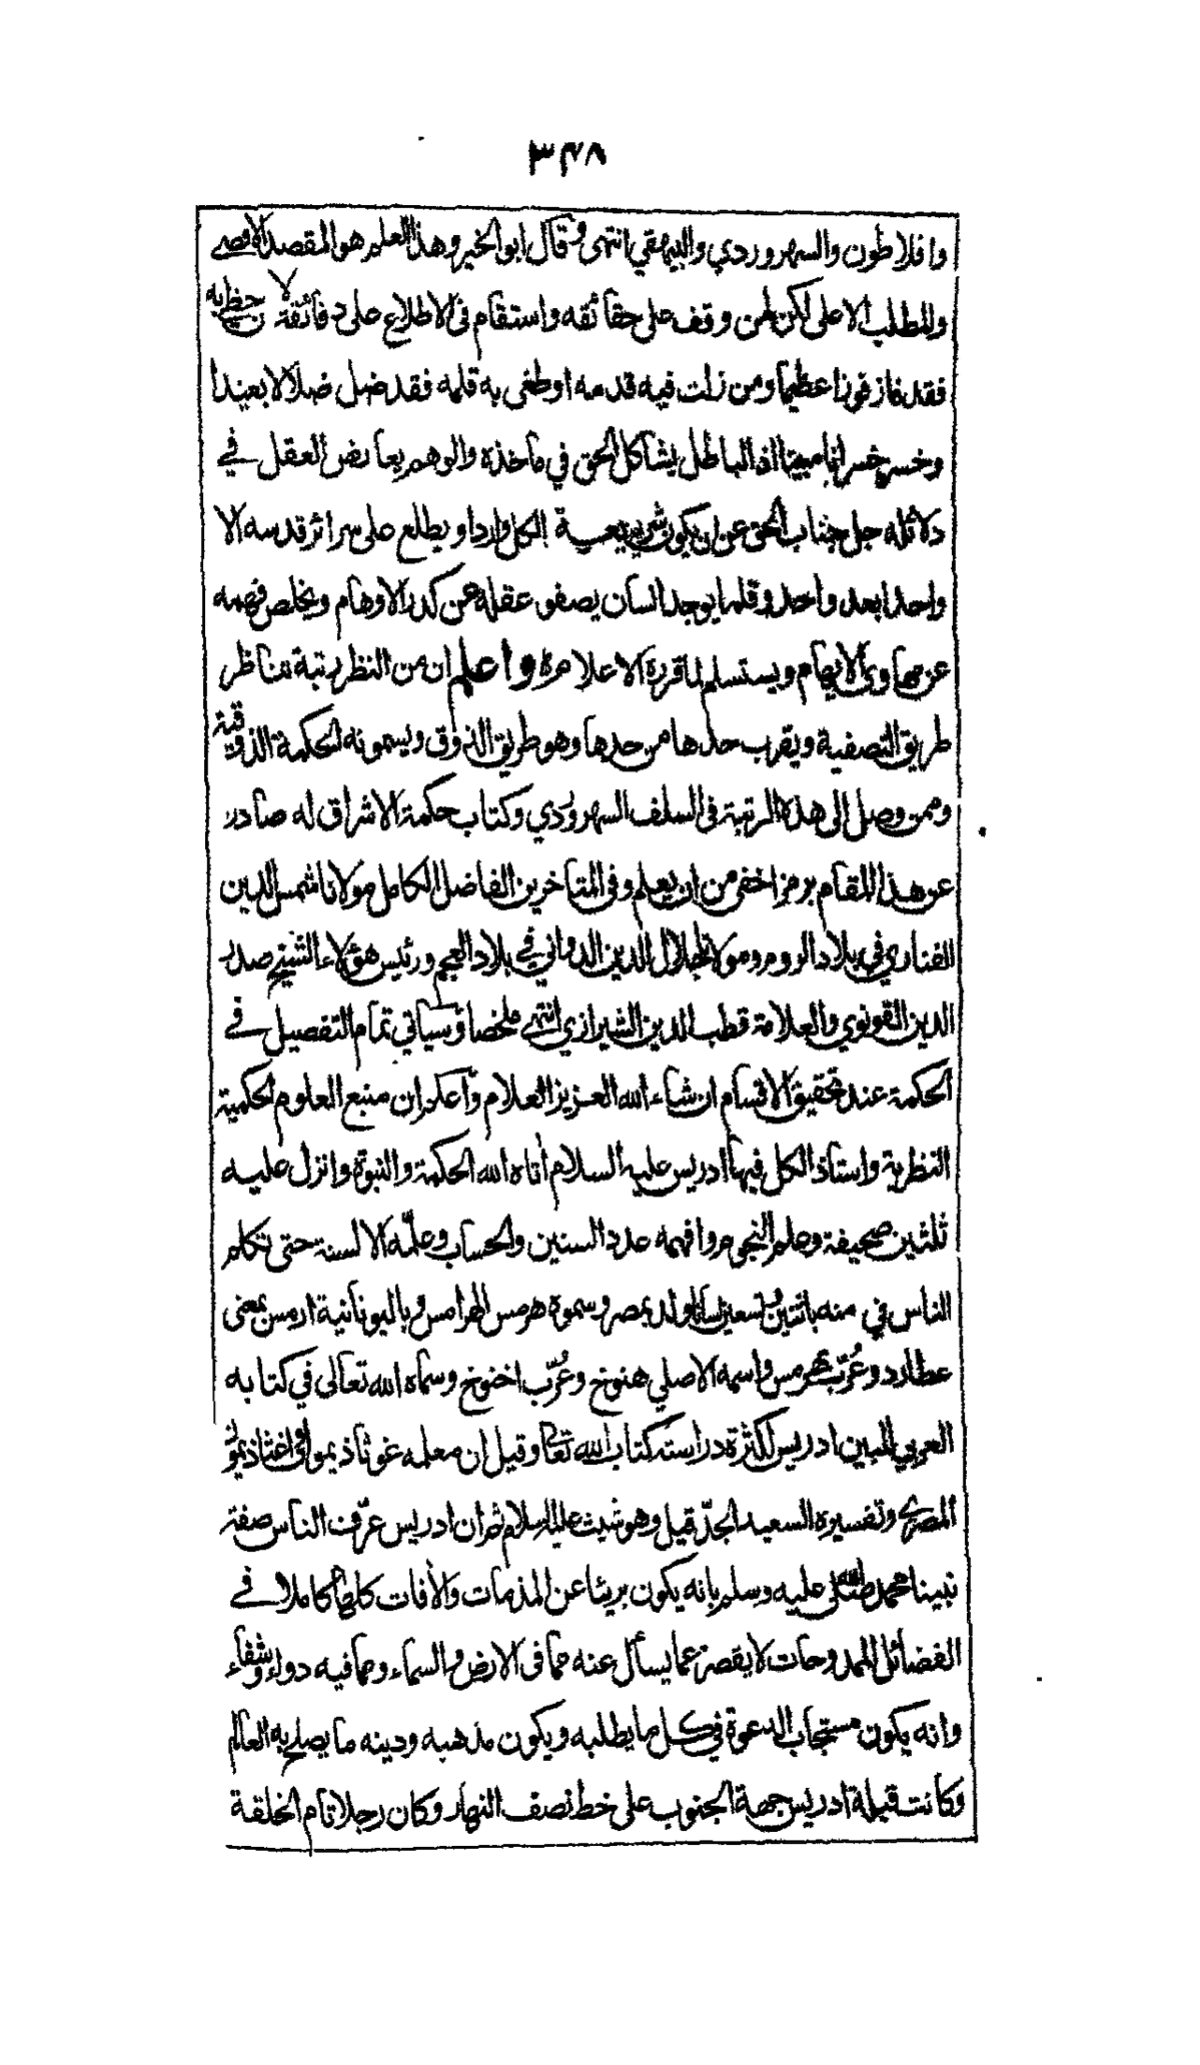 ٣٤٨
وافلاطون والسهروردي والبيهقي انتهى وقال ابو الخير وهذا العلم هو المقصد الاقصى
والمطلب الاعلى لكن لمن وقف على حقائقه واستقام في الاطلاع على دقائقه لا حظ به
فقد فاز فوزا عظيما ومن زلت فيه قدمه او طغى به قلمه فقد ضل ضلالا بعيدا
وخسر خسرانا مبينا اذ الباطل يشاكل الحق في مآخذه والوهم يعارض العقل في
دلائله جل جناب الحق عن ان يكون شريعة لكل وارد او يطلع على سرائر قدسه الا
واحدا بعد واحد وقلما يوجد انسان يصفو عقله عن كدر الاوهام ويخلص فهمه
عن مهاوي الايهام ويستسلم لما قرره الاعلام واعلم ان من النظر رتبة تناظر
طريق التصفية ويقرب حدها من حدها وهو طريق الذوق ويسمونه الحكمة الذوقية
وممن وصل الى هذه الرتبة في السلف السهروردي وكتاب حكمة الاشراق له صادر
عن هذا المقام برمز اخفى من ان يعلم وفي المتاخرين الفاضل الكامل مولانا شمس الدين
الفناري في بلاد الروم ومولانا جلال الدين الدواني في بلاد العجم ورئيس هؤلاء الشيخ صدر
الدين القونوي والعلامة قطب الدين الشيرازي انتهى ملخصا وسيأتي تمام التفصيل في
الحكمة عند تحقيق الاقسام ان شاء الله العزيز العلام واعلم ان منبع العلوم الحكمية
النظرية واستاذ الكل فيها ادريس عليه السلام اتاه الله الحكمة والنبوة وانزل عليه
ثلثين صحيفة وعلم النجوم وافهمه عدد السنين والحساب وعلّمه الالسنة حتى تكلم
الناس في منه باثنتين وتسعين لسانا ولد بمصر وسموه هرمس الهرامس وباليونانية ارمس بمعنى
عطارد وعُرّب بهرمس واسمه الاصلي هنوخ وعُرّب اخنوخ وسماه الله تعالى في كتابه
العربي المبين ادريس لكثرة دراسته كتاب الله تعا وقيل ان معلمه غوثاذيمو او اغثاذيمون
المصري وتفسيره السعيد الجدّ قيل وهو شيث عليه السلام ثم ان ادريس عرّف الناس صفة
نبينا محمد صلى الله عليه وسلم بانه يكون بريئا عن المذمات والآفات كلها كاملا في
الفضائل الممدوحات لا يقصر عما يسأل عنه مما في الارض والسماء ومما فيه دواء وشفاء
وانه يكون مستجاب الدعوة في كل ما يطلبه ويكون مذهبه ودينه ما يصلح به العالم
وكانت قبلة ادريس جهة الجنوب على خط نصف النهار وكان رجلا تام الخلقة